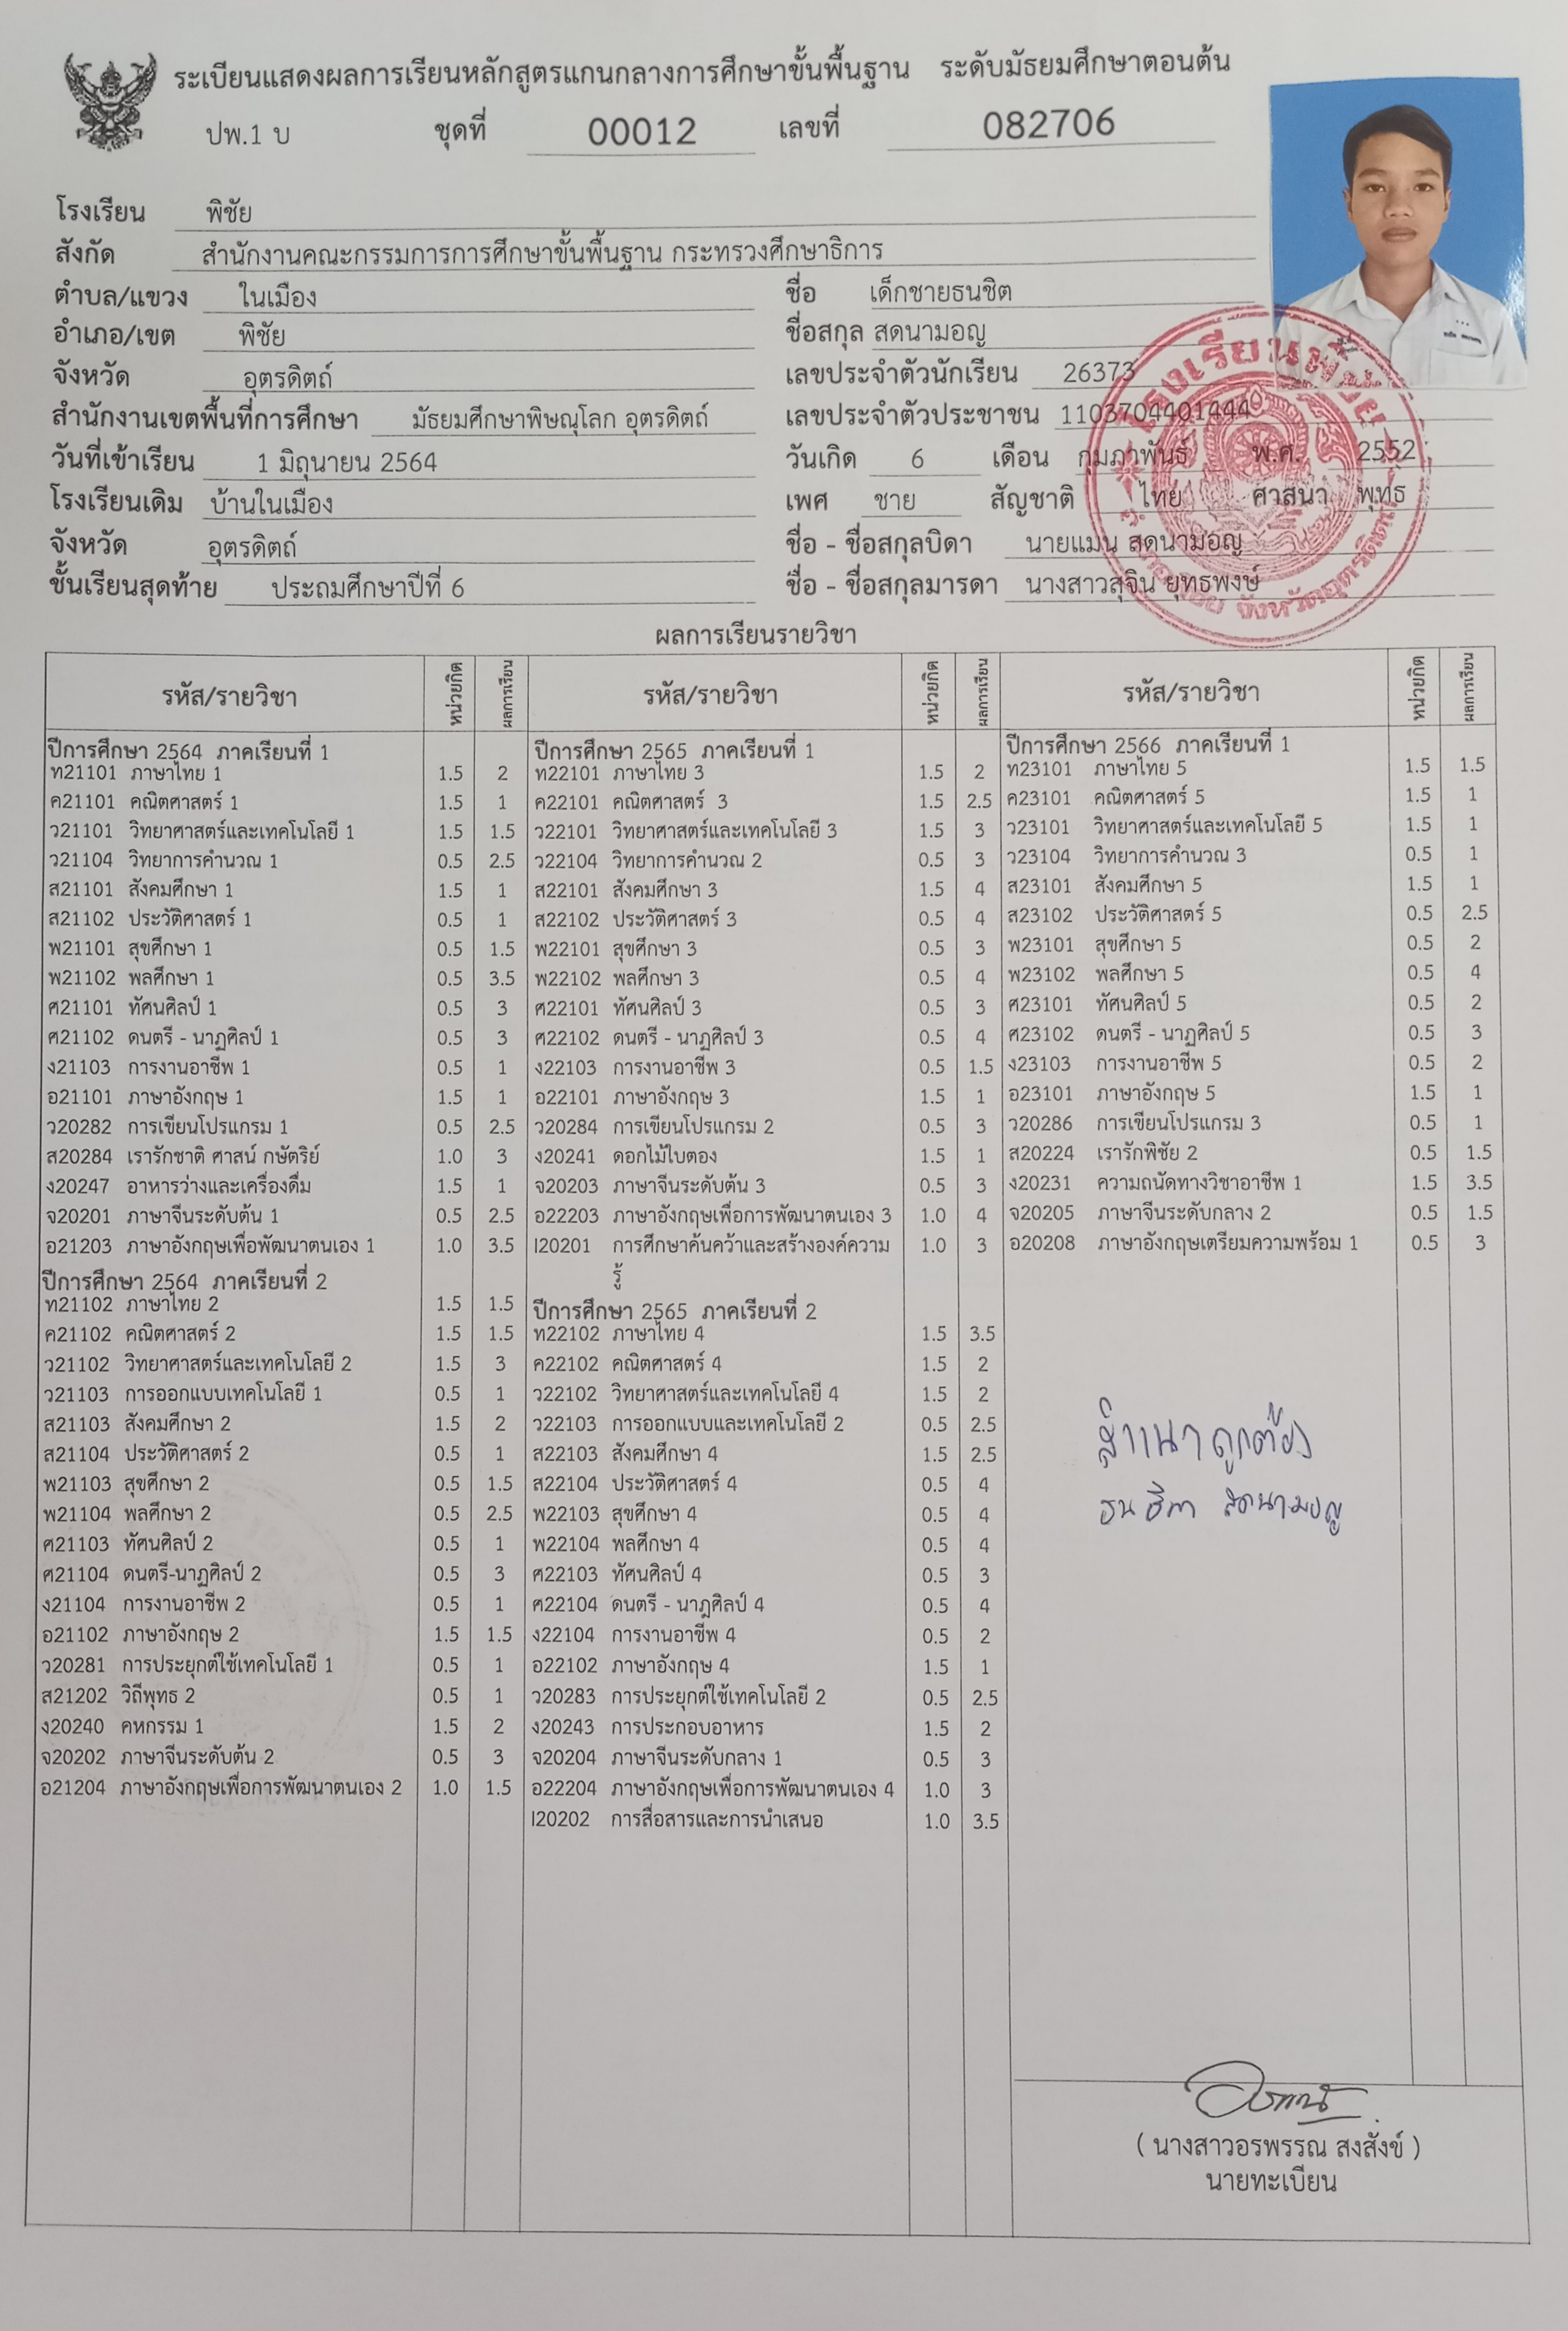 ระเบียนแสดงผลการเรียนหลักสูตรแกนกลางการศึกษาขั้นพื้นฐาน ระดับมัธยมศึกษาตอนต้น
ปพ.1 บ ชุดที่ 00012 เลขที่ 082706
โรงเรียน พิชัย
สังกัด สำนักงานคณะกรรมการการศึกษาขั้นพื้นฐาน กระทรวงศึกษาธิการ
ตำบล/แขวง ในเมือง
อำเภอ/เขต พิชัย
จังหวัด อุตรดิตถ์
สำนักงานเขตพื้นที่การศึกษา มัธยมศึกษาพิษณุโลก อุตรดิตถ์
วันที่เข้าเรียน 1 มิถุนายน 2564
โรงเรียนเดิม บ้านในเมือง
จังหวัด อุตรดิตถ์
ชั้นเรียนสุดท้าย ประถมศึกษาปีที่ 6
ชื่อ เด็กชายธนชิต
ชื่อสกุล สดนามอญ
เลขประจำตัวนักเรียน 26373
เลขประจำตัวประชาชน 1103704401444
วันเกิด 6 เดือน กุมภาพันธ์ พ.ศ. 2552
เพศ ชาย สัญชาติ ไทย ศาสนา พุทธ
ชื่อ - ชื่อสกุลบิดา นายแมน สดนามอญ
ชื่อ - ชื่อสกุลมารดา นางสาวสุจิน ยุทธพงษ์
ผลการเรียนรายวิชา
รหัส/รายวิชา หน่วยกิต ผลการเรียน
ปีการศึกษา 2564 ภาคเรียนที่ 1
ท21101 ภาษาไทย 1 1.5 2
ค21101 คณิตศาสตร์ 1 1.5 1
ว21101 วิทยาศาสตร์และเทคโนโลยี 1 1.5 1.5
ว21104 วิทยาการคำนวณ 1 0.5 2.5
ส21101 สังคมศึกษา 1 1.5 1
ส21102 ประวัติศาสตร์ 1 0.5 1
พ21101 สุขศึกษา 1 0.5 1.5
พ21102 พลศึกษา 1 0.5 3.5
ศ21101 ทัศนศิลป์ 1 0.5 3
ศ21102 ดนตรี - นาฏศิลป์ 1 0.5 3
ง21103 การงานอาชีพ 1 0.5 1
อ21101 ภาษาอังกฤษ 1 1.5 1
ว20282 การเขียนโปรแกรม 1 0.5 2.5
ส20284 เรารักชาติ ศาสน์ กษัตริย์ 1.0 3
ง20247 อาหารว่างและเครื่องดื่ม 1.5 1
จ20201 ภาษาจีนระดับต้น 1 0.5 2.5
อ21203 ภาษาอังกฤษเพื่อพัฒนาตนเอง 1 1.0 3.5
ปีการศึกษา 2564 ภาคเรียนที่ 2
ท21102 ภาษาไทย 2 1.5 1.5
ค21102 คณิตศาสตร์ 2 1.5 1.5
ว21102 วิทยาศาสตร์และเทคโนโลยี 2 1.5 3
ว21103 การออกแบบเทคโนโลยี 1 0.5 1
ส21103 สังคมศึกษา 2 1.5 2
ส21104 ประวัติศาสตร์ 2 0.5 1
พ21103 สุขศึกษา 2 0.5 1.5
พ21104 พลศึกษา 2 0.5 2.5
ศ21103 ทัศนศิลป์ 2 0.5 1
ศ21104 ดนตรี-นาฏศิลป์ 2 0.5 3
ง21104 การงานอาชีพ 2 0.5 1
อ21102 ภาษาอังกฤษ 2 1.5 1.5
ว20281 การประยุกต์ใช้เทคโนโลยี 1 0.5 1
ส21202 วิถีพุทธ 2 0.5 1
ง20240 คหกรรม 1 1.5 2
จ20202 ภาษาจีนระดับต้น 2 0.5 3
อ21204 ภาษาอังกฤษเพื่อการพัฒนาตนเอง 2 1.0 1.5
รหัส/รายวิชา หน่วยกิต ผลการเรียน
ปีการศึกษา 2565 ภาคเรียนที่ 1
ท22101 ภาษาไทย 3 1.5 2
ค22101 คณิตศาสตร์ 3 1.5 2.5
ว22101 วิทยาศาสตร์และเทคโนโลยี 3 1.5 3
ว22104 วิทยาการคำนวณ 2 0.5 3
ส22101 สังคมศึกษา 3 1.5 4
ส22102 ประวัติศาสตร์ 3 0.5 4
พ22101 สุขศึกษา 3 0.5 3
พ22102 พลศึกษา 3 0.5 4
ศ22101 ทัศนศิลป์ 3 0.5 3
ศ22102 ดนตรี - นาฏศิลป์ 3 0.5 4
ง22103 การงานอาชีพ 3 0.5 1.5
อ22101 ภาษาอังกฤษ 3 1.5 1
ว20284 การเขียนโปรแกรม 2 0.5 3
ง20241 ดอกไม้ใบตอง 1.5 1
จ20203 ภาษาจีนระดับต้น 3 0.5 3
อ22203 ภาษาอังกฤษเพื่อการพัฒนาตนเอง 3 1.0 4
I20201 การศึกษาค้นคว้าและสร้างองค์ความ 1.0 3
รู้
ปีการศึกษา 2565 ภาคเรียนที่ 2
ท22102 ภาษาไทย 4 1.5 3.5
ค22102 คณิตศาสตร์ 4 1.5 2
ว22102 วิทยาศาสตร์และเทคโนโลยี 4 1.5 2
ว22103 การออกแบบและเทคโนโลยี 2 0.5 2.5
ส22103 สังคมศึกษา 4 1.5 2.5
ส22104 ประวัติศาสตร์ 4 0.5 4
พ22103 สุขศึกษา 4 0.5 4
พ22104 พลศึกษา 4 0.5 4
ศ22103 ทัศนศิลป์ 4 0.5 3
ศ22104 ดนตรี - นาฎศิลป์ 4 0.5 4
ง22104 การงานอาชีพ 4 0.5 2
อ22102 ภาษาอังกฤษ 4 1.5 1
ว20283 การประยุกต์ใช้เทคโนโลยี 2 0.5 2.5
ง20243 การประกอบอาหาร 1.5 2
จ20204 ภาษาจีนระดับกลาง 1 0.5 3
อ22204 ภาษาอังกฤษเพื่อการพัฒนาตนเอง 4 1.0 3
I20202 การสื่อสารและการนำเสนอ 1.0 3.5
รหัส/รายวิชา หน่วยกิต ผลการเรียน
ปีการศึกษา 2566 ภาคเรียนที่ 1
ท23101 ภาษาไทย 5 1.5 1.5
ค23101 คณิตศาสตร์ 5 1.5 1
ว23101 วิทยาศาสตร์และเทคโนโลยี 5 1.5 1
ว23104 วิทยาการคำนวณ 3 0.5 1
ส23101 สังคมศึกษา 5 1.5 1
ส23102 ประวัติศาสตร์ 5 0.5 2.5
พ23101 สุขศึกษา 5 0.5 2
พ23102 พลศึกษา 5 0.5 4
ศ23101 ทัศนศิลป์ 5 0.5 2
ศ23102 ดนตรี - นาฏศิลป์ 5 0.5 3
ง23103 การงานอาชีพ 5 0.5 2
อ23101 ภาษาอังกฤษ 5 1.5 1
ว20286 การเขียนโปรแกรม 3 0.5 1
ส20224 เรารักพิชัย 2 0.5 1.5
ง20231 ความถนัดทางวิชาอาชีพ 1 1.5 3.5
จ20205 ภาษาจีนระดับกลาง 2 0.5 1.5
อ20208 ภาษาอังกฤษเตรียมความพร้อม 1 0.5 3
สำเนาถูกต้อง
สดนามอญ
( นางสาวอรพรรณ สงสังข์ )
นายทะเบียน